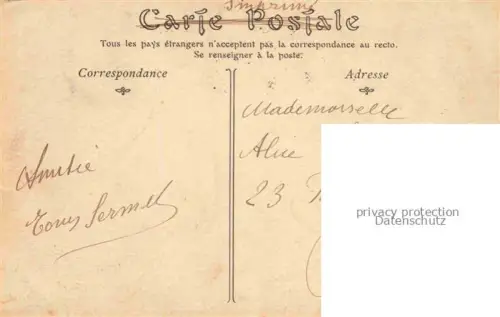 Imprimé
Carte Postale
Tous les pays étrangers n'acceptent pas la correspondance au recto.
Se renseigner à la poste.
Correspondance
Adresse
Mademoiselle
Alice
23
Amitié
privacy protection
Datenschutz